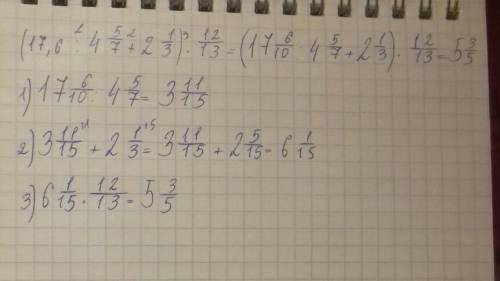 (17,6 : 4 5/7 + 2 1/3) · 12/13 = (17 6/10 : 4 5/7 + 2 1/3) · 12/13 = 5 3/5
1) 17 6/10 : 4 5/7 = 3 11/15
2) 3 11/15 + 2 1/3 = 3 11/15 + 2 5/15 = 6 1/15
3) 6 1/15 · 12/13 = 5 3/5